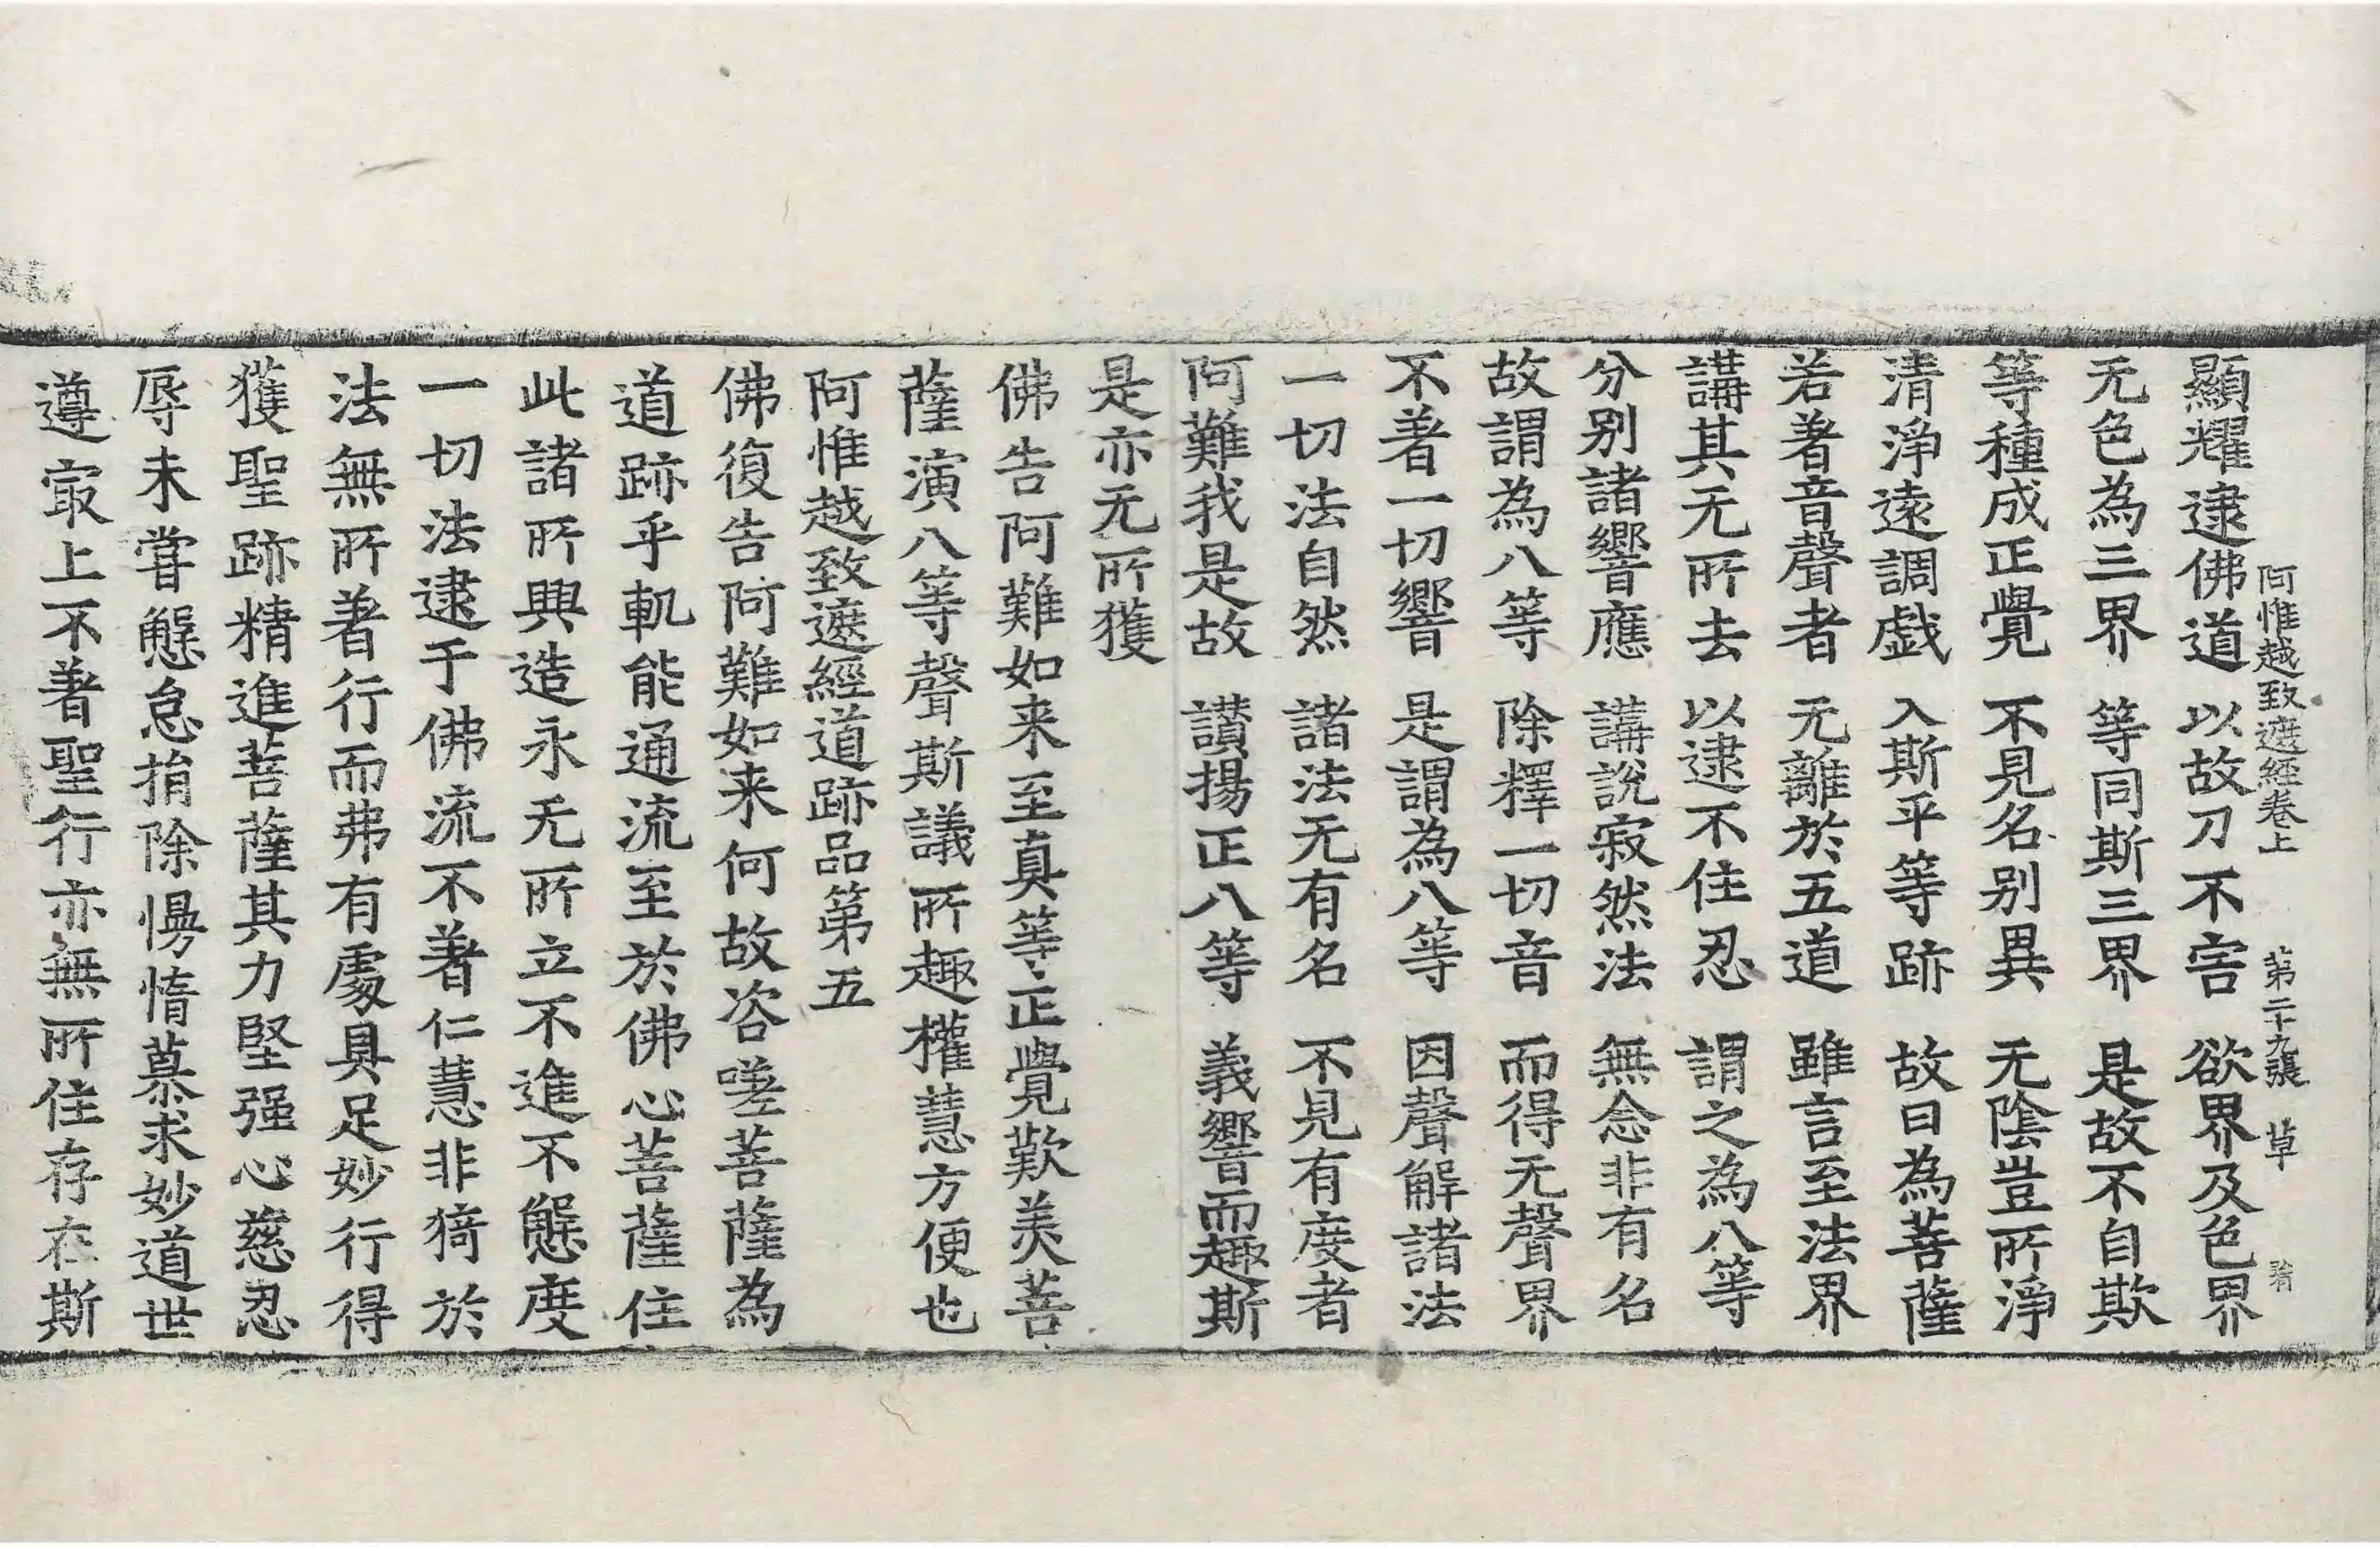 阿惟越致遮經卷上 第二十九張 草
顯耀逮佛道 以故刀不害 欲界及色界
无色為三界 等同斯三界 是故不自欺
等種成正覺 不見名別異 无陰豈所淨
清淨遠調戲 入斯平等跡 故曰為菩薩
若著音聲者 无離於五道 雖言至法界
講其无所去 以逮不住忍 謂之為八等
分別諸響應 講說寂然法 無念非有名
故謂為八等 除釋一切音 而得无聲界
不著一切響 是謂為八等 因聲解諸法
一切法自然 諸法无有名 不見有度者
阿難我是故 讃揚正八等 義響而趣斯
是亦无所獲
佛告阿難如来至真等正覺歎美菩
薩演八等聲斯議所趣權慧方便也
阿惟越致遮經道跡品第五
佛復告阿難如来何故咨嗟菩薩為
道跡乎軌能通流至於佛心菩薩住
此諸所興造永无所立不進不懈度
一切法逮于佛流不著仁慧非猗於
法無所著行而弗有處具足妙行得
獲聖跡精進菩薩其力堅强心慈忍
辱未嘗懈怠捐除慢惰慕求妙道世
遵寂上不著聖行亦無所住存在斯